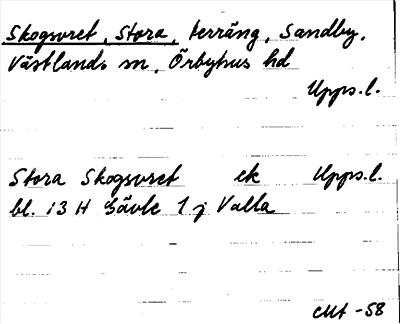 Skogsvret, Stora, terräng, Sandby,
Västlands sn, Örbyhus hd
Upps.l.
Stora Skogsvret ek Upps.l.
bl. 13 H Gävle 1 j Valla
CMt -58